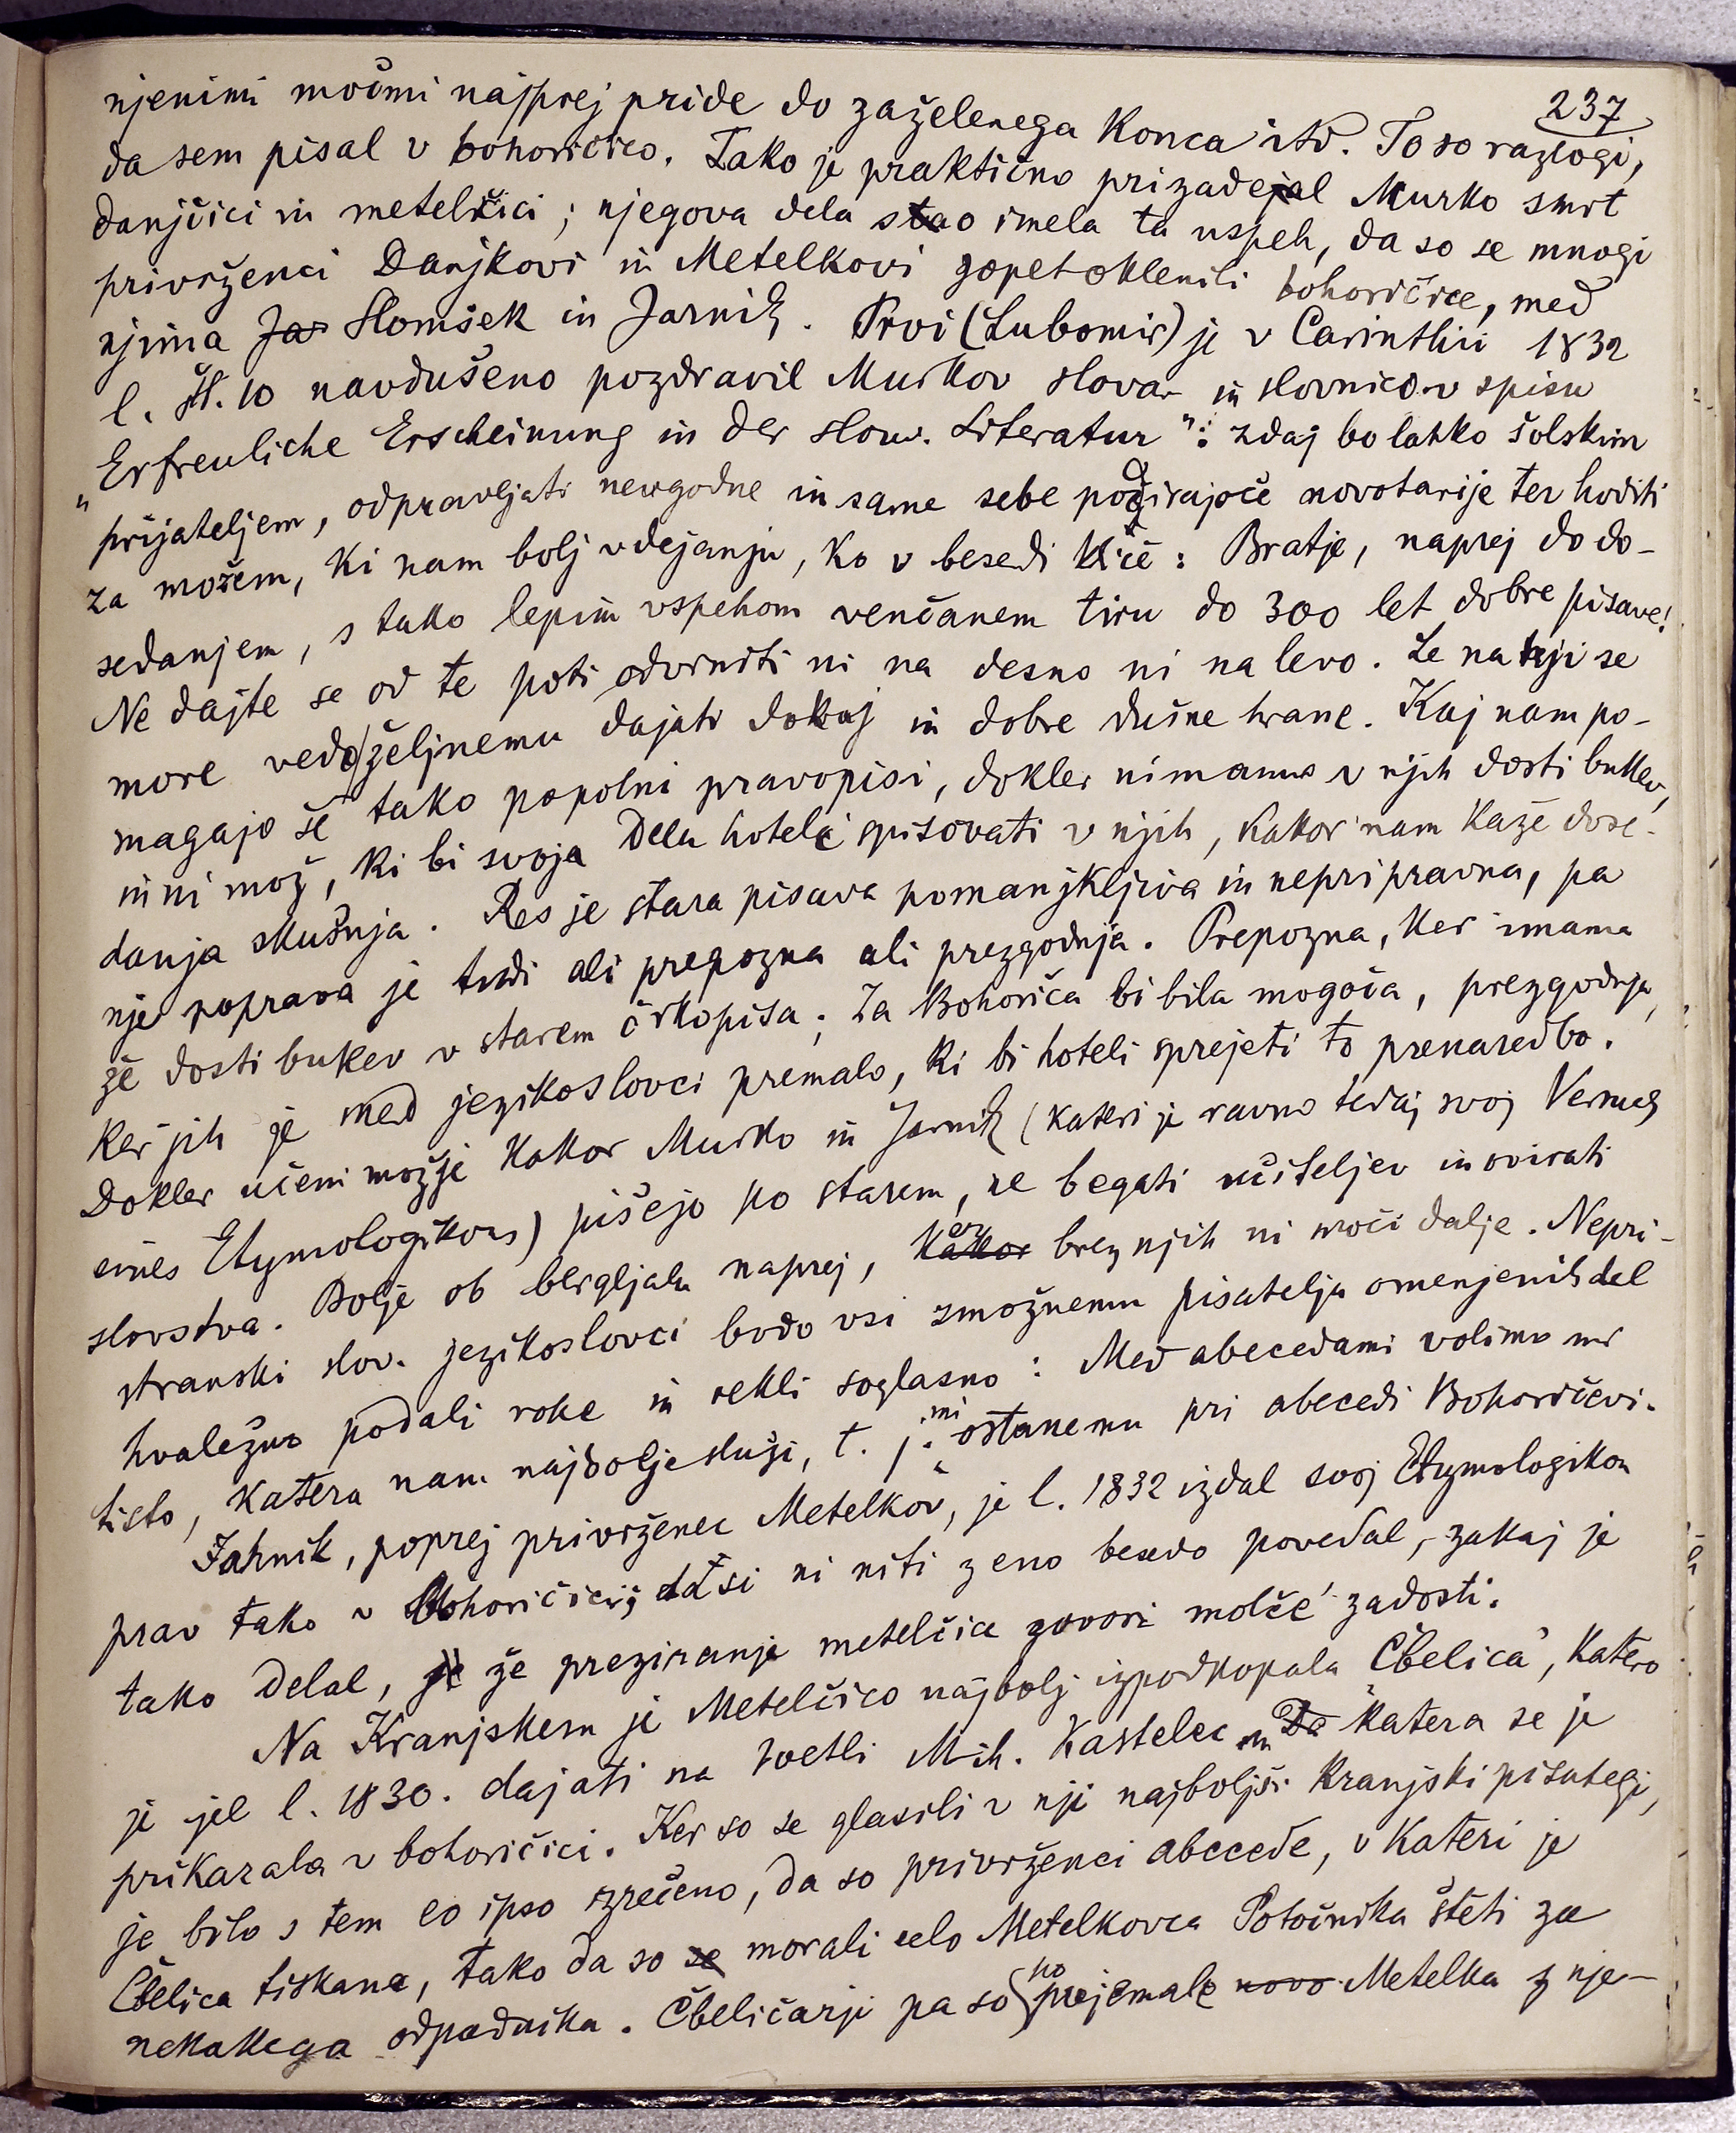 237
njenimi močmi najprej pride do zaželenega konca itd. To so razlogi,
da sem pisal v bohoričico. Tako je praktično prizadejal Murko smrt
danjčici in metelčici; njegova dela so imela ta uspeh, da so se mnogi
privrženci Danjkovi in Metelkovi zopet oklenili bohoričice, med
njima Ja Slomšek in Jarnik. Prvi (Lubomir) je v Carinthii 1832
l. št. 10 navdušeno pozdravil Murkov slovar in slovnico v spisu
„Erfreuliche Erscheinung in der slow. Literatur": zdaj bo lahko šolskim
prijateljem, odpravljati neugodne in same sebe požirajoče novotarije ter hoditi
za možem, ki nam bolj v dejanju, ko v besedi kliče: Bratje, naprej do do-
sedanjem, s tako lepim vspehom venčanem tiru do 300 let dobre pisave!
Ne dajte se od te poti odvrniti ni na desno ni na levo. Le na njej se
more vedoželjnemu dajati dokaj in dobre dušne hrane. Kaj nam po-
magajo še tako popolni pravopisi, dokler nimamo v njih dosti bukev,
in ni mož, ki bi svoja dela hoteli spisovati v njih, kakor nam kaže dose-
danja skušnja. Res je stara pisava pomanjkljiva in nepripravna, pa
nje poprava je tudi ali prepozna ali prezgodnja. Prepozna, ker imamo
že dosti bukev v starem črkopisu; za Bohoriča bi bila mogoča, prezgodnja,
ker jih je med jezikoslovci premalo, ki bi hoteli sprejeti to prenaredbo.
Dokler učeni možje kakor Murko in Jarnik (kateri je ravno tedaj svoj Versuch
eines Etymologikons) pišejo po starem, ne begati učiteljev in ovirati
slovstva. Bolje ob bergljah naprej, kakor ker brez njih ni moči dalje. Nepri-
stranski slov. jezikoslovci bodo vsi zmožnemu pisatelju omenjenih del
hvaležno podali roke in rekli soglasno: Med abecedami volimo mi
tisto, katera nam najbolje služi, t. j. mi ostanemo pri abecedi Bohoričevi.
Jarnik, poprej privrženec Metelkov, je l. 1832 izdal svoj Etymologikon
prav tako v Bohoričici; dasi ni niti z eno besedo povedal, zakaj je
tako delal, je že preziranje metelčice govori molče zadosti.
Na Kranjskem je Metelčico najbolj izpodkopala „Čbelica", katero
je jel l. 1830. dajati na svetli Mih. Kastelec in Da katera se je
prikazala v bohoričici. Ker so se glasili v nji najboljši kranjski pisatelji,
je bilo s tem eo ipso izrečeno, da so privrženci abecede, v kateri je
Čbelica tiskana, tako da so se morali celo Metelkovca Potočnika šteti za
nekakega odpadnika. Čbeličarji pa so po prijemale novo Metelka z nje-